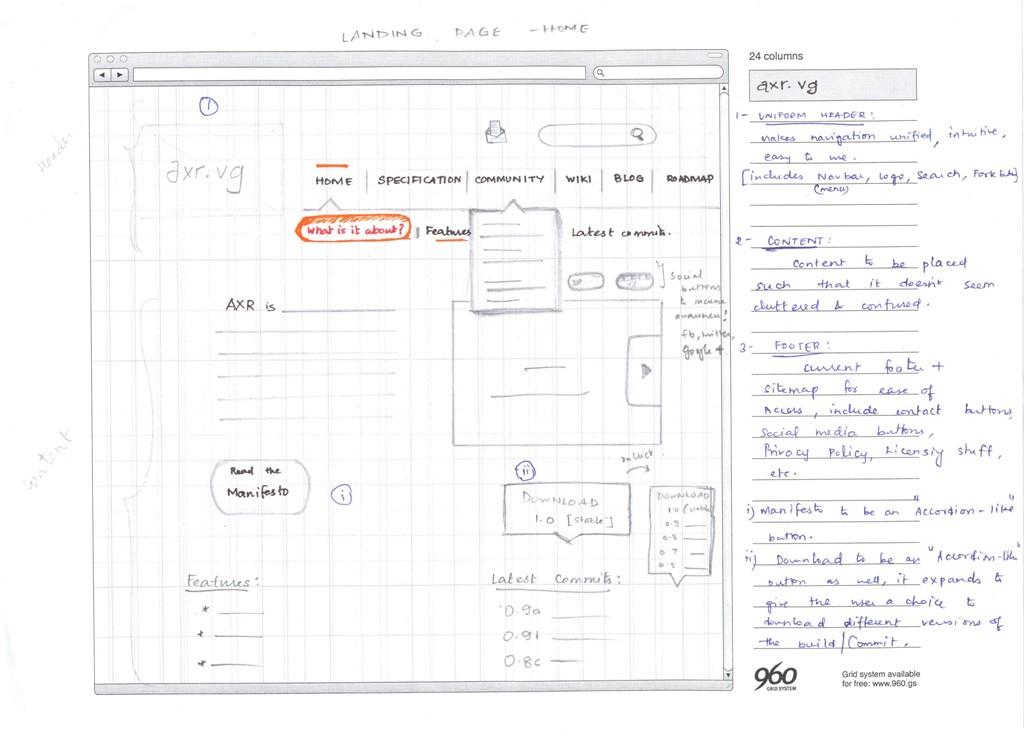 LANDING PAGE - HOME
24 columns
axr.vg
1
Header
axr.vg
HOME
SPECIFICATION
COMMUNITY
WIKI
BLOG
ROADMAP
What is it about?
Features
Latest commits.
Social
buttons
to increase
awareness!
fb, twitter,
google +
AXR is
Content
Read the
Manifesto
i
ii
onclick
DOWNLOAD
1.0 [stable]
DOWNLOAD
0.9
0.8
0.7
0.5
Features:
*
*
*
Latest Commits:
0.9a
0.91
0.8c
1- UNIFORM HEADER:
makes navigation unified, intuitive,
easy to use.
[includes Navbar, logo, Search,
(menu)
2- CONTENT:
Content to be placed
such that it doesn't seem
cluttered & confused.
3- FOOTER:
current footer +
sitemap for ease of
Access, include contact buttons,
Social media buttons,
Privacy Policy, Licensing stuff,
etc.
i) Manifesto to be an "Accordion-like"
button.
ii) Download to be an "Accordion-like"
button as well, it expands to
give the user a choice to
download different versions of
the build/Commit.
960
GRID SYSTEM
Grid system available
for free: www.960.gs